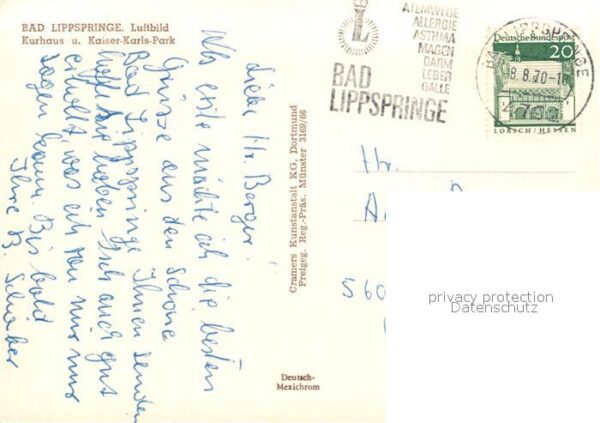 BAD LIPPSPRINGE. Luftbild
Kurhaus u. Kaiser-Karls-Park
Lieber Hr. Berger!
Als erste möchte ich die besten
Grüsse aus den Schöne
Bad Lippspringe Ihnen senden
hoffe Sie haben Sich auch gut
erholt, was ich von mir nur
sagen kann. Bis bald
Ihre B.
Cramers Kunstanstalt KG, Dortmund
Freigeg. Reg.-Präs. Münster 3169/66
Deutsch-
Mexichrom
ATEMWEGE
ALLERGIE
ASTHMA
MAGEN
DARM
LEBER
GALLE
BAD
LIPPSPRINGE
BAD LIPPSPRINGE
8.8.70-1
Deutsche Bundespost
20
LORSCH/HESSEN
Hr.
A
560
privacy protection
Datenschutz